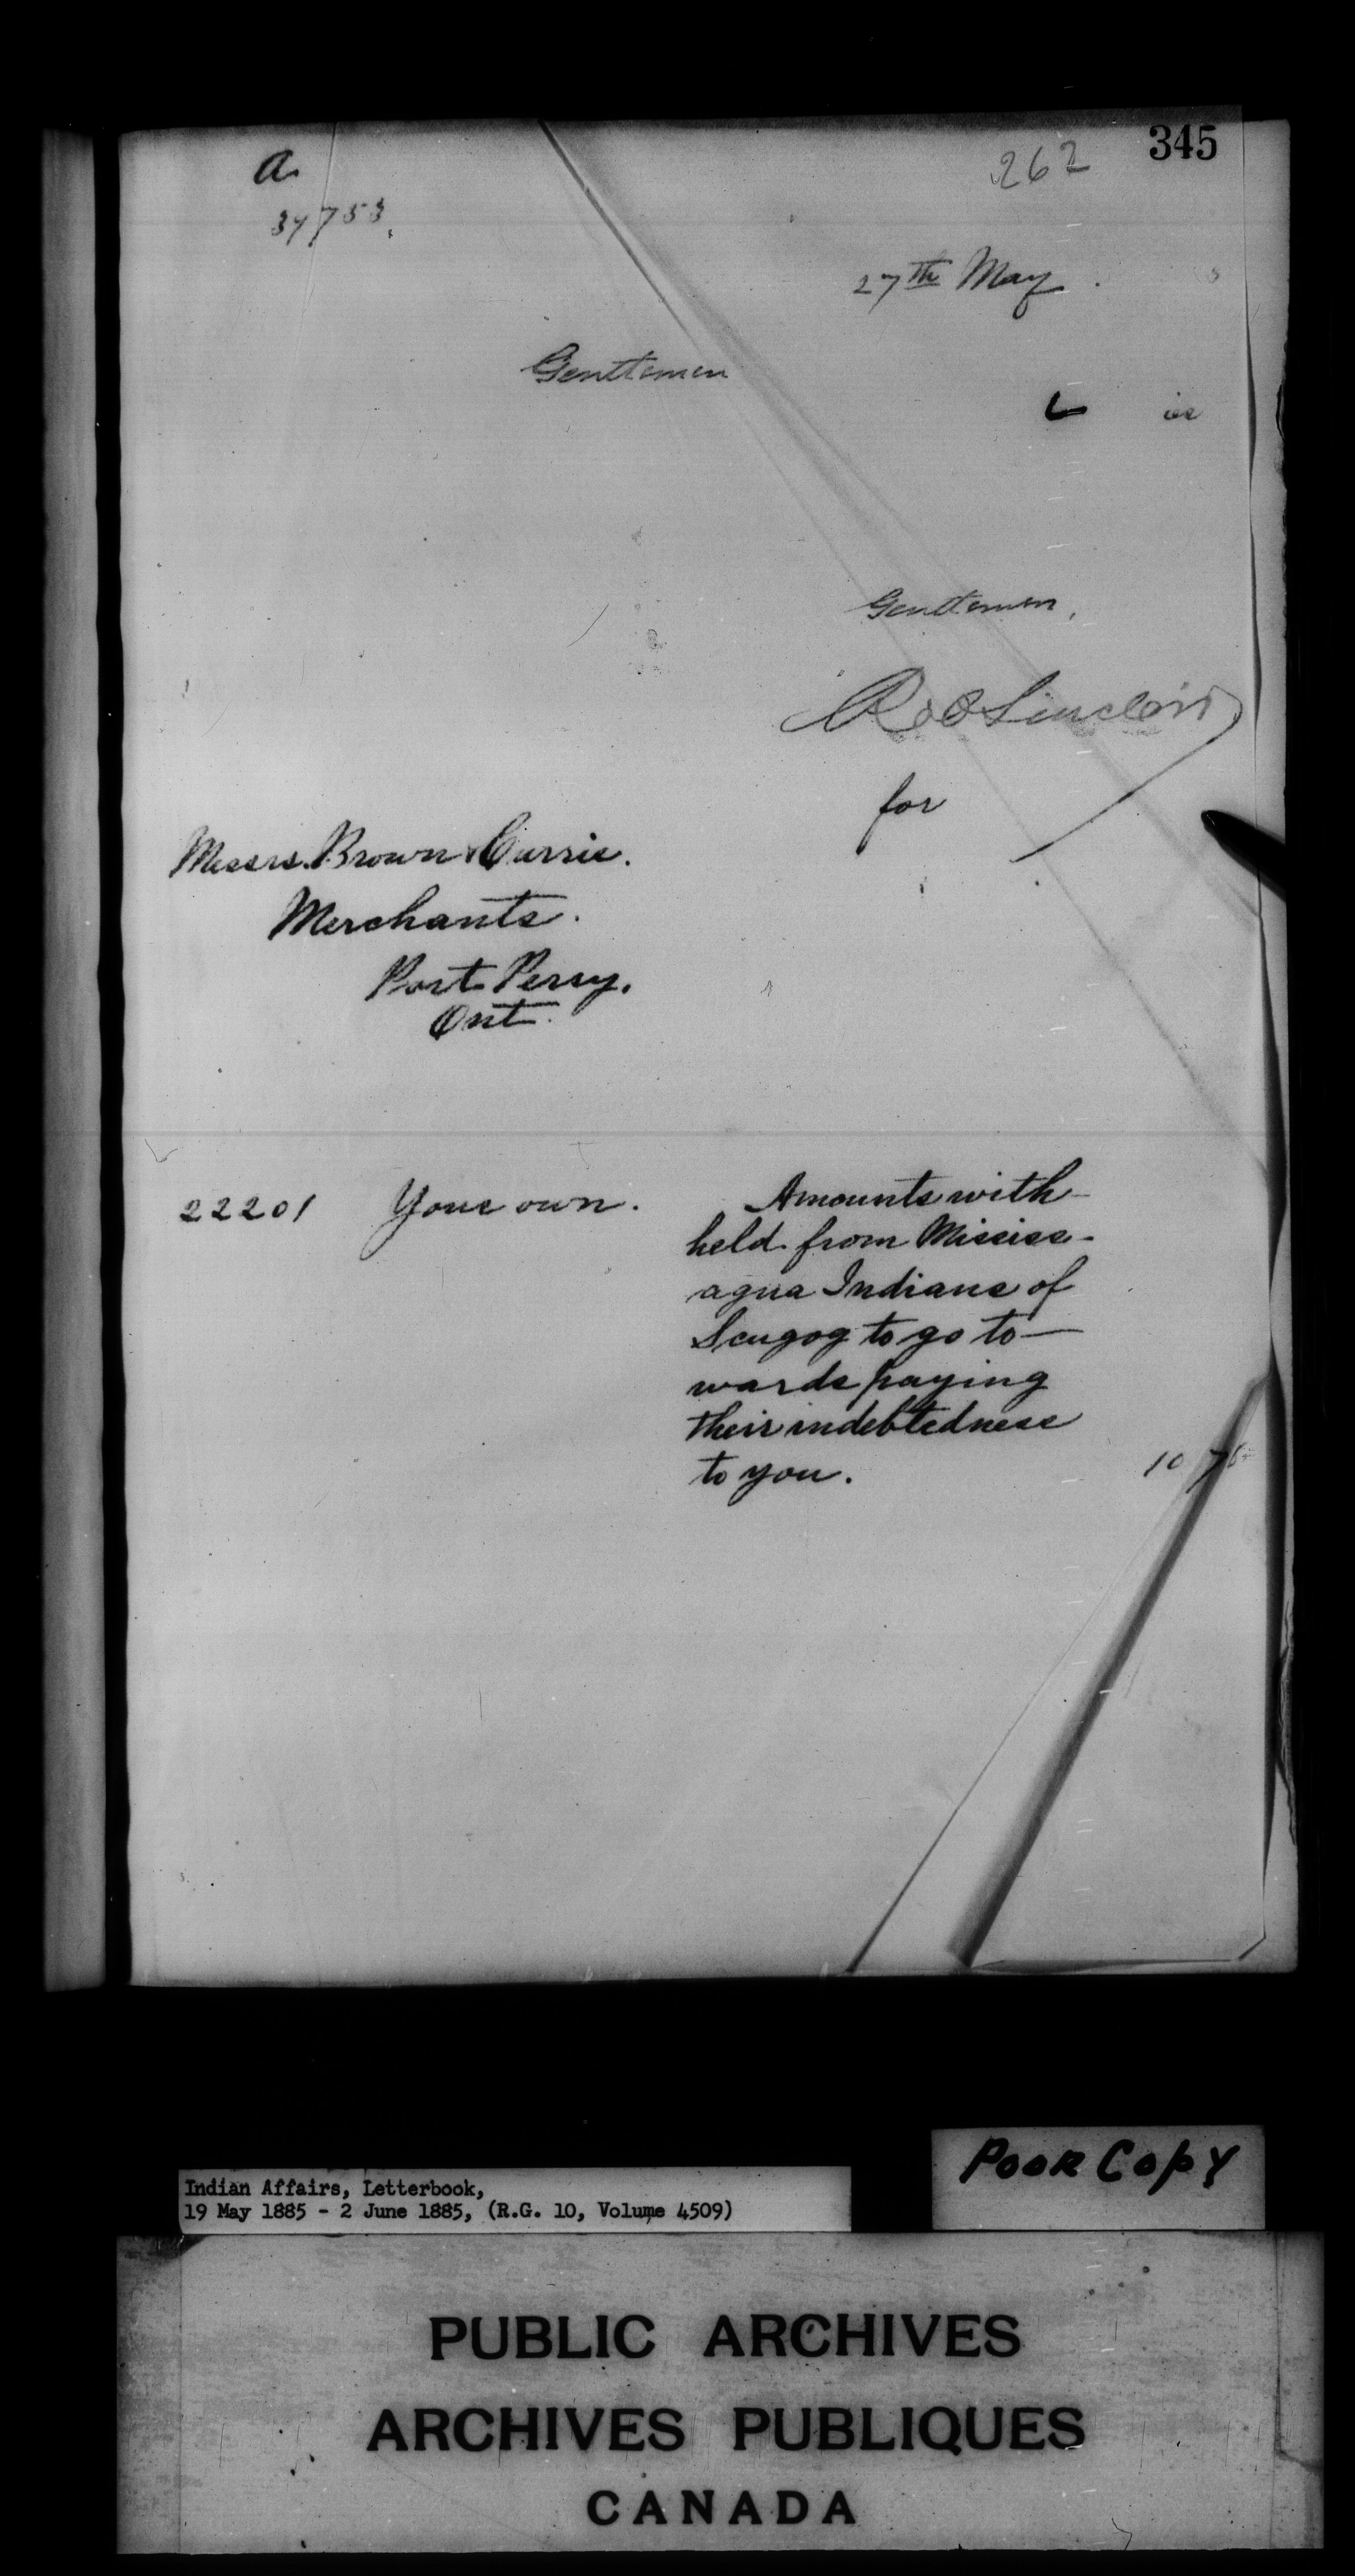 345
262
a.
34753.
27th May.
Gentlemen
Gentlemen,
Rob Sinclair
for
Messrs. Brown & Currie.
Merchants.
Port Perry.
Ont.
22201 Your own. Amounts with-
held from Mississ-
agua Indians of
Scugog to go to-
wards paying
their indebtedness
to you. 10 75
Poor Copy
Indian Affairs, Letterbook,
19 May 1885 - 2 June 1885, (R.G. 10, Volume 4509)
PUBLIC ARCHIVES
ARCHIVES PUBLIQUES
CANADA